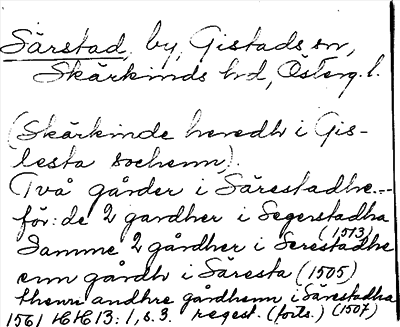 Särstad, by, Gistads sn,
Skärkinds hd, Österg. l.
(Skärkinde heredh i Gis-
lesta sochenn).
Två gårder i Särestadhe.--
för: de 2 gardher i Segerstadha
(1513)
Samme 2 gårdher i Serestadhe
enn gårdh i Säresta (1505)
thenn andhre gårdhenn i Särestadha
1561 HH 13:1, s. 3. regest. (forts.) (1507)